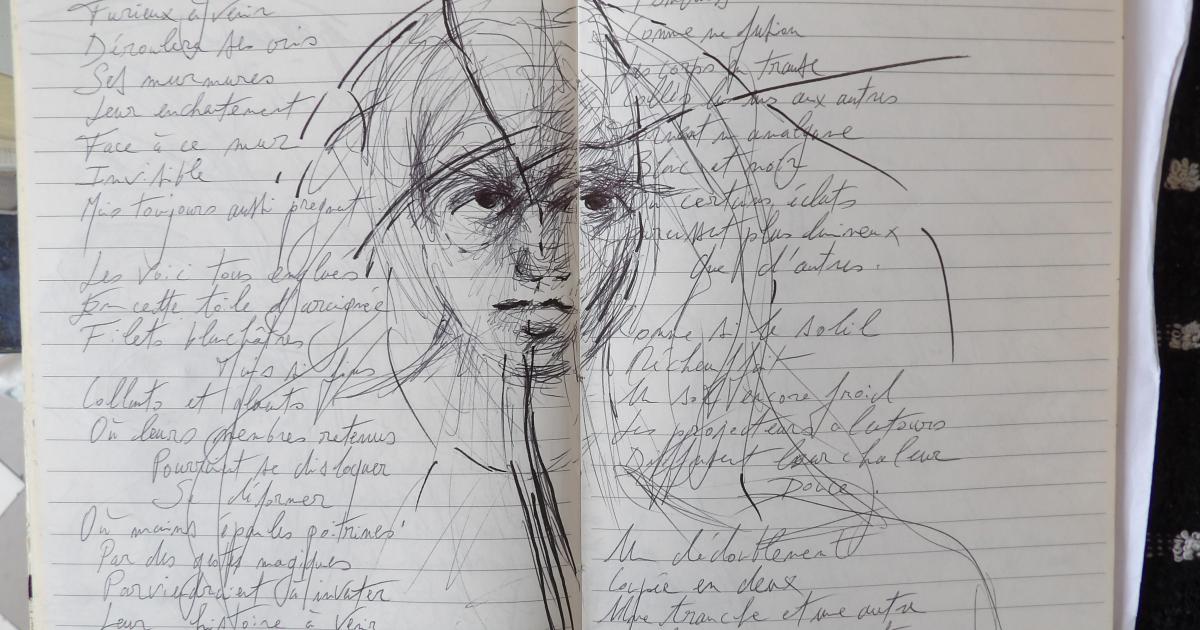 Furieux à venir
Déroulera ses
Ses murmures
Leur enchantement
Face à ce mur
Invisible
Mais toujours aussi prégnant
Les voici tous englués
En cette toile d'araignée
Filets blanchâtres
Mais si fins
Collants et gluants
Où leurs membres retenus
Pourraient se disloquer
Se déformer
Où mains épaules poitrines
Par des gestes magiques
Parviendraient à inventer
Leur histoire à venir
Comme une fusion
corps en transe
uns aux autres
Formant un amalgame
Blanc et noir
Où certains éclats
plus lumineux
Que d'autres.
Comme si le soleil
Réchauffait
Un sol encore froid
Les projecteurs alentours
Diffusent leur chaleur
Douce.
Un dédoublement
Coupée en deux
Une tranche et une autre